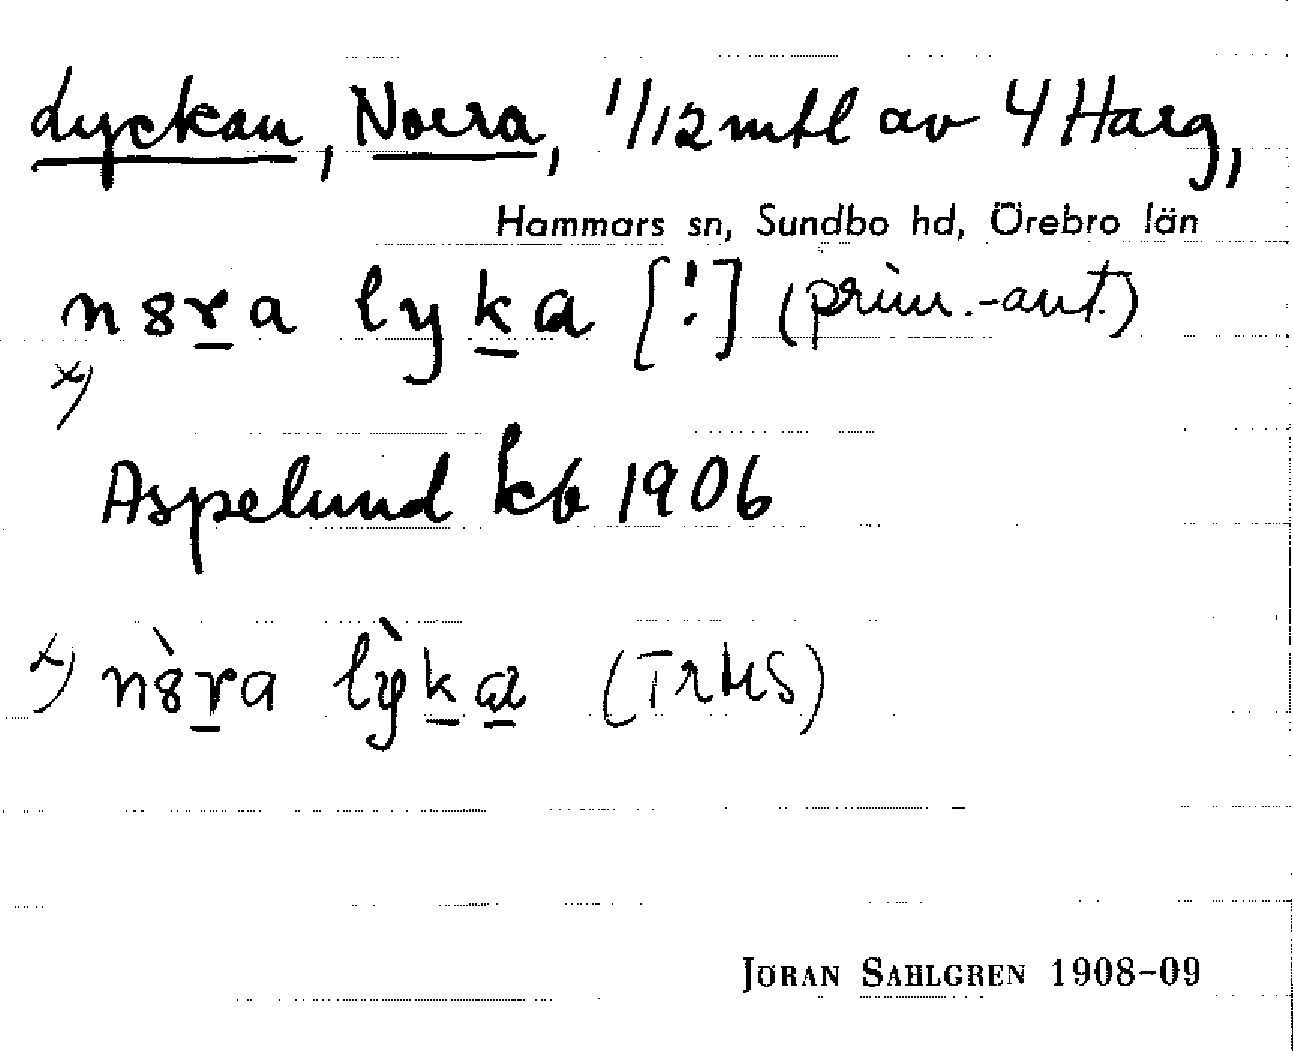 Lyckan, Norra, 1/12 mtl av 4 Harg,
Hammars sn, Sundbo hd, Örebro län
n8ra lyka [!] (prim.-ant.)
x)
Aspelund kb 1906
x) n8̀ra lỳka (TrHS)
JÖRAN SAHLGREN 1908-09